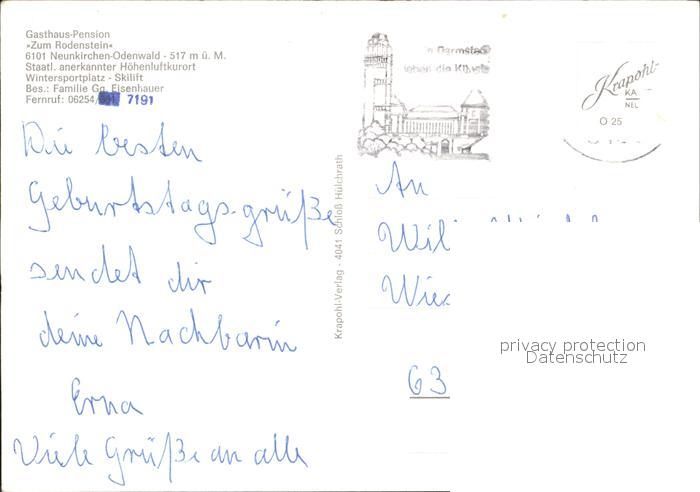 Gasthaus-Pension
»Zum Rodenstein«
6101 Neunkirchen-Odenwald - 517 m ü. M.
Staatl. anerkannter Höhenluftkurort
Wintersportplatz - Skilift
Bes.: Familie Gg. Eisenhauer
Fernruf: 06254/ 7191
Die besten
Geburtstagsgrüße
sendet dir
deine Nachbarin
Erna
Viele Grüße an alle
Krapohl-Verlag - 4041 Schloß Hülchrath
n Darmstadt
leben die Künste
Krapohl-
KA
NEL
O 25
An
Wil
Wie
63
privacy protection
Datenschutz